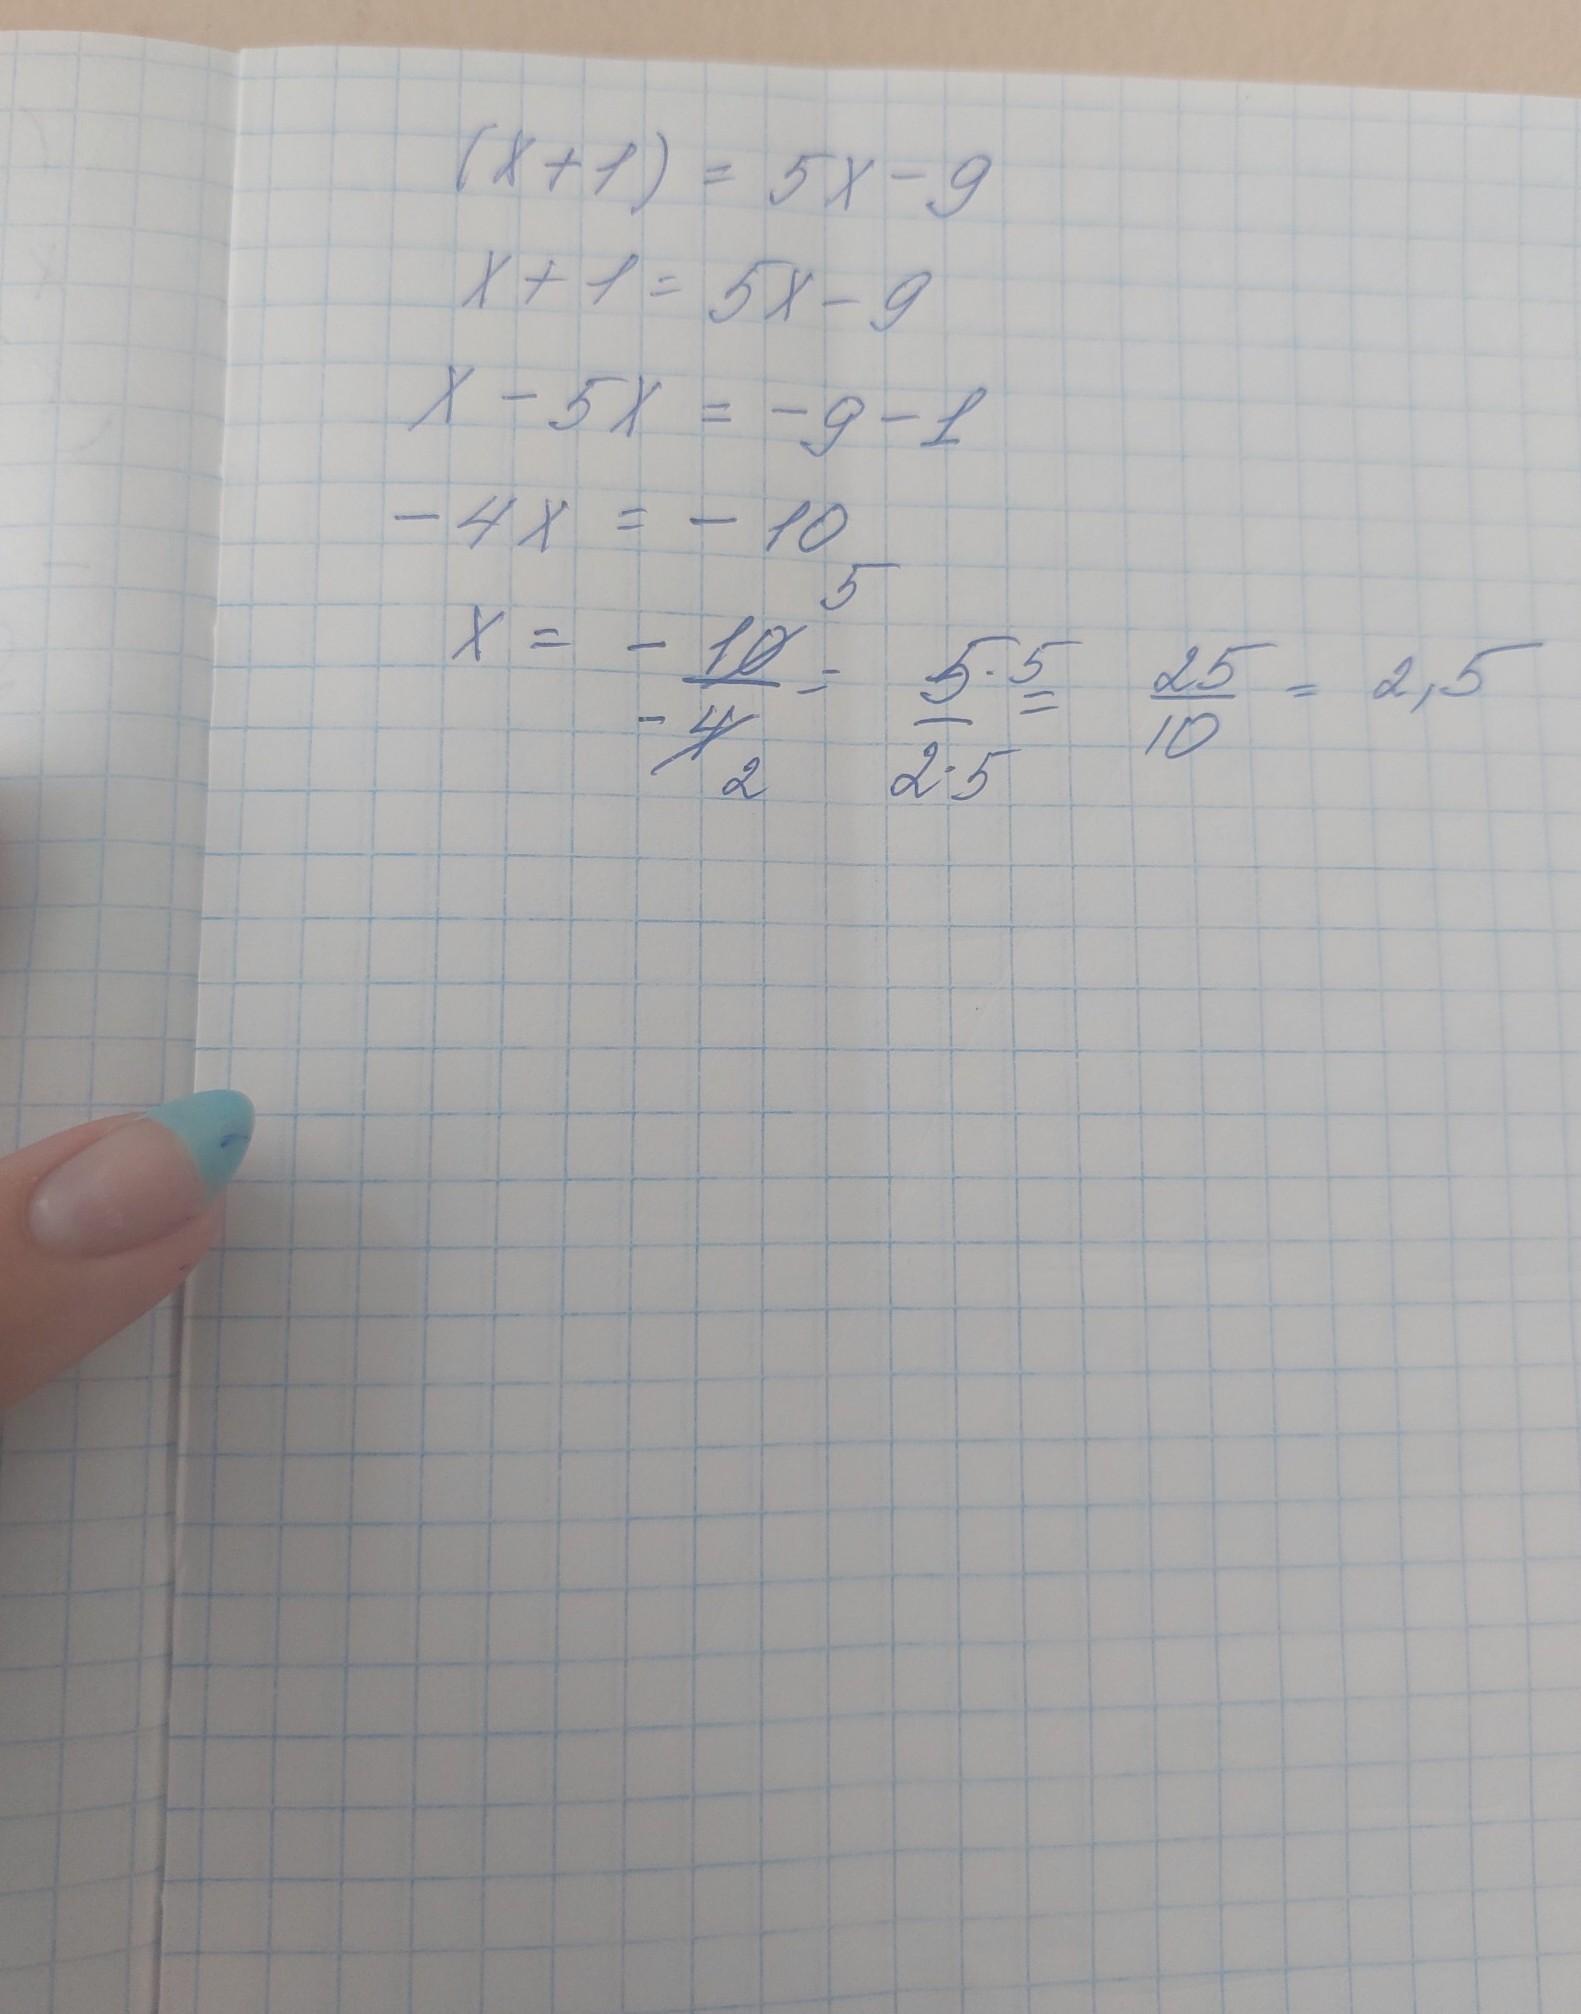 (x+1) = 5x-9
x+1 = 5x-9
x - 5x = -9-1
-4x = -10
x = -10/-4 5 2 = 5·5/2·5 = 25/10 = 2,5